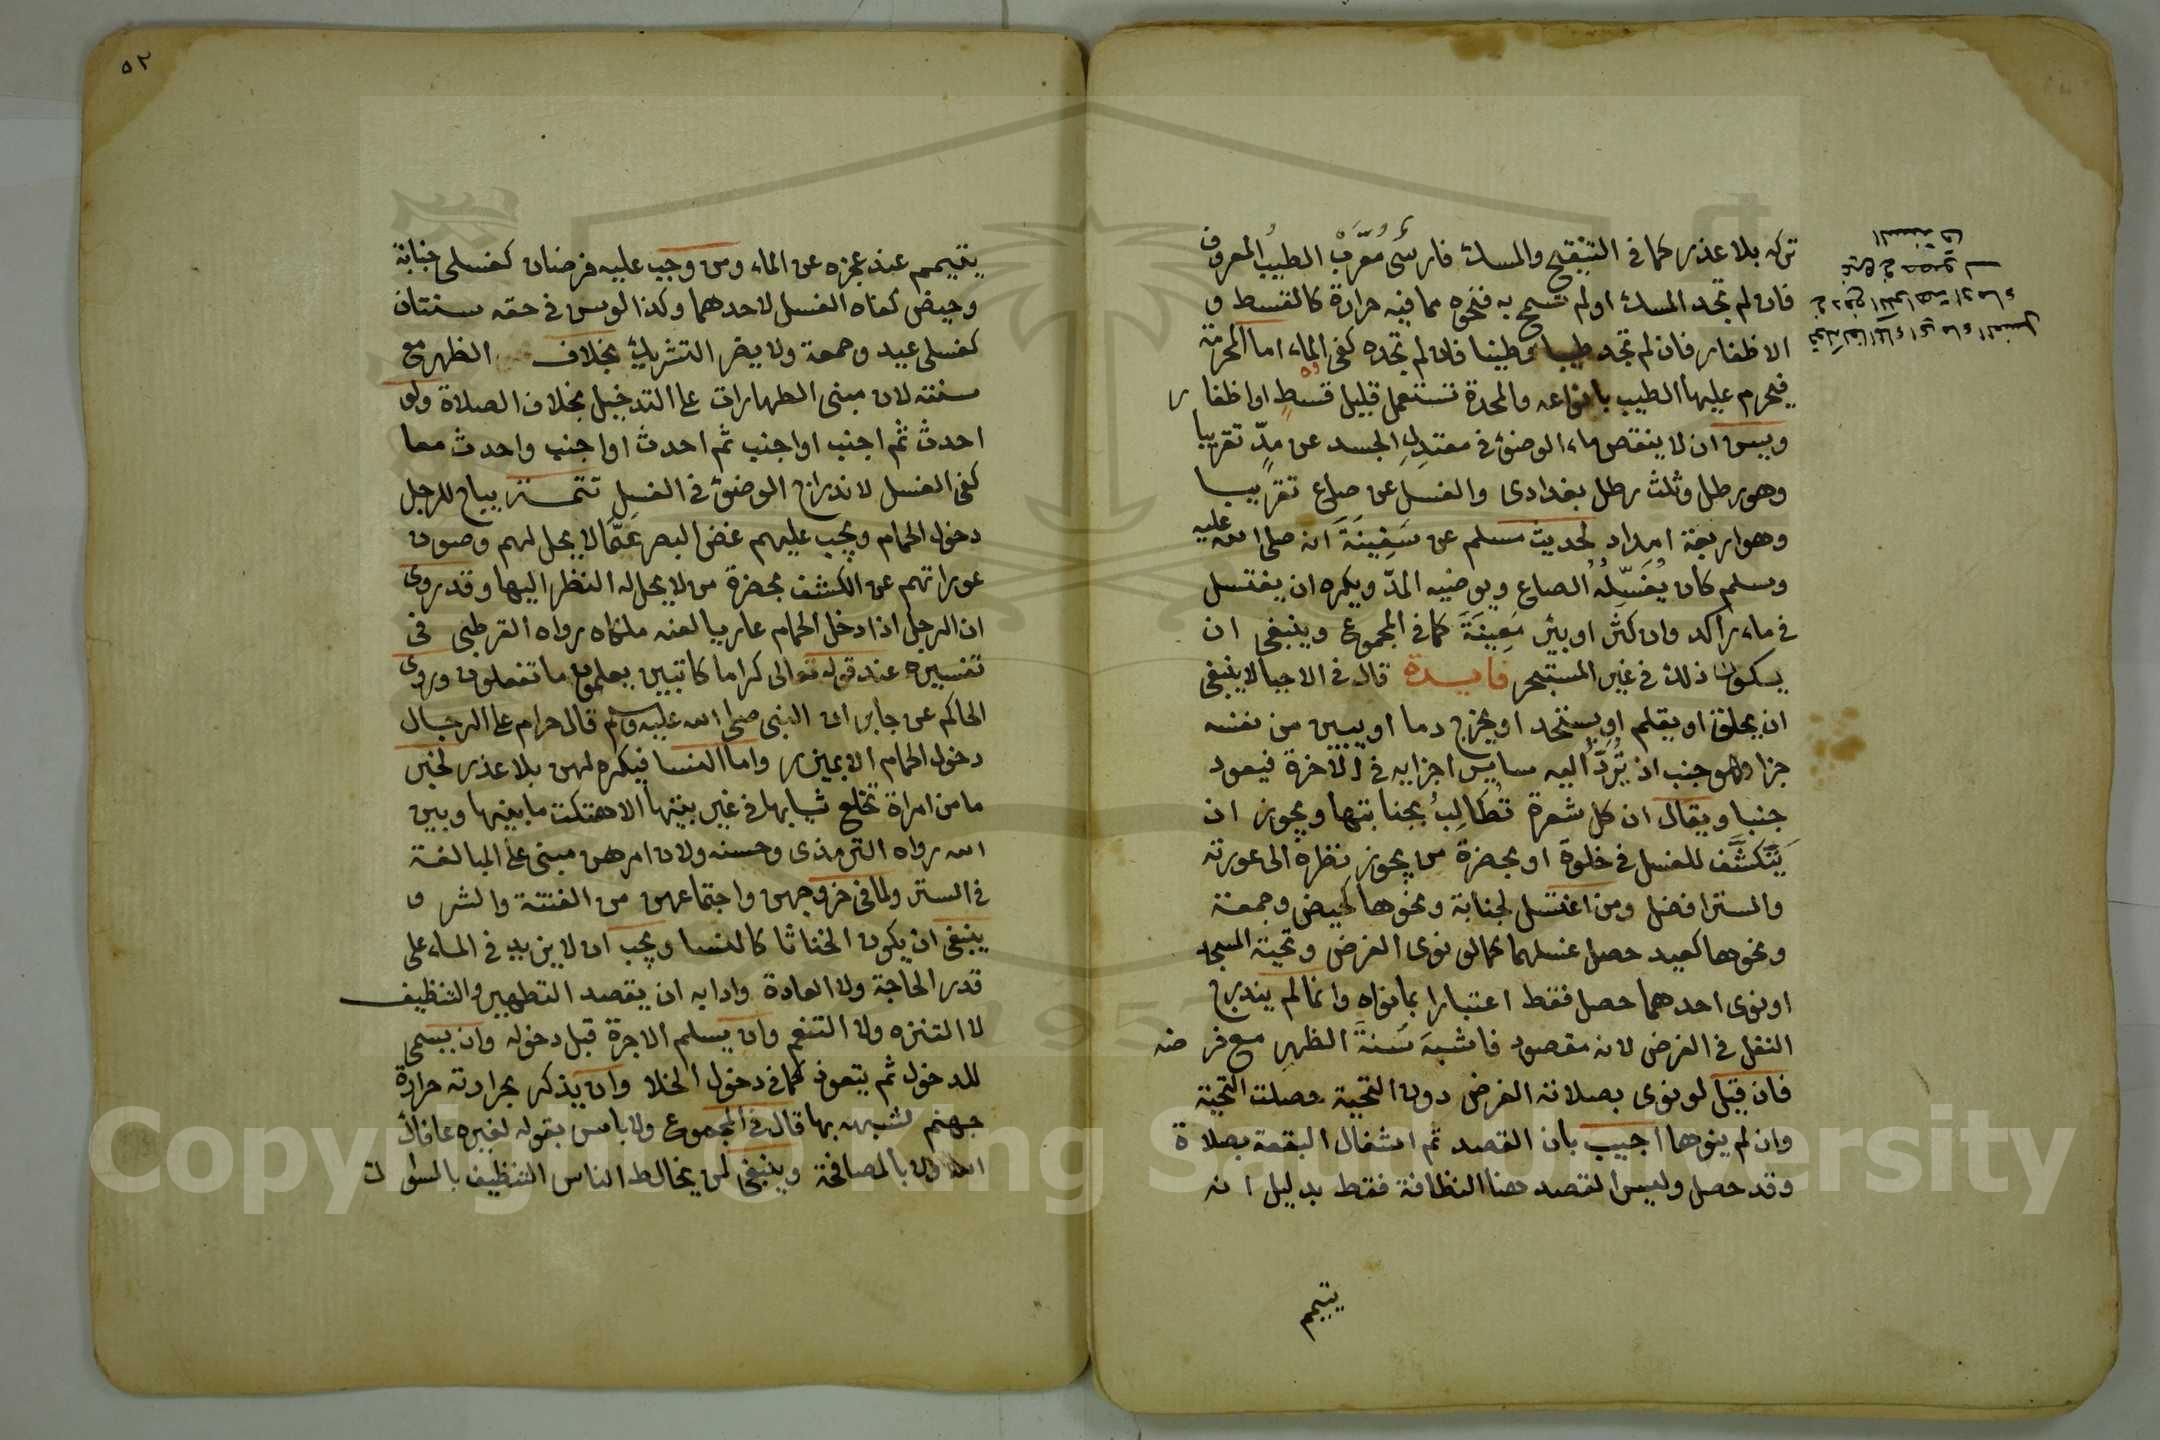 تركه بلا عذر كما في التنقيح والمسك فارسيٌّ مُعرَّبٌ الطيبُ المعروف
فان لم تجد المسك او لم تسمح به فنحوه مما فيه حرارة كالقسط و
الاظفار فان لم تجد طيبا فطينا فان لم تجده كفى الماء اما المحرمة
فيحرم عليها الطيب بانواعه والمحدة تستعمل قليل قسطٍ او اظفار
ويسن ان لا ينقص ماء الوضوء في معتدل الجسد عن مدٍّ تقريبا
وهو رطل وثلث رطل بغدادى والغسل عن صاع تقريبا
وهو اربعة امداد لحديث مسلم عن سَفِينَةَ انه صلى الله عليه
وسلم كان يُغَسِّلُهُ الصاع ويوضيه المدّ ويكره ان يغتسل
في ماء راكد وان كثر او بئر مَعِينَةَ كما في المجموع وينبغي ان
يكون ذلك في غير المستبحر فايدة قال في الاحيا لا ينبغي
ان يحلق او يقلم او يستحد او يخرج دما او يبين من نفسه
جزا وهو جنب اذ تُرَدُّ اليه ساير اجزايه في الاخرة فيعود
جنبا ويقال ان كل شعرة تُطَالِبُ بجنابتها ويجوز ان
يَتَكَشَّف للغسل في خلوة او بحضرة من يجوز نظره الى عورته
والستر افضل ومن اغتسل لجنابة ونحوها كحيض وجمعة
ونحوها كعيد حصل غسلهما كما لو نوى الفرض وتحية المسجد
او نوى احدهما حصل فقط اعتبارا بما نواه وانما لم يندرج
النفل في الفرض لانه مقصود فاشبه سُنةَ الظهر مع فرضه
فان قيل لو نوى بصلاته الفرض دون التحية حصلت التحية
وان لم ينوها اجيب بان القصد ثم اشغال البقعة بصلاة
وقد حصل وليس القصد هنا النظافة فقط بدليل انه
يتيمم
يتيمم عند عجزه عن الماء ومن وجب عليه فرضان كغسلى جنابة
وحيض كفاه الغسل لاحدهما وكذا لو سن في حقه سنتان
كغسلى عيد وجمعة ولا يضر التشريك بخلاف الظهر مع
سنته لان مبنى الطهارات على التداخل بخلاف الصلاة ولو
احدث ثم اجنب او اجنب ثم احدث او اجنب واحدث معا
كفى الغسل لاندراج الوضوء في الغسل تتمة يباح للرجل
دخول الحمام ويجب عليهم غض البصر عمَّا لا يحل لهم وصون
عوراتهم عن الكشف بحضرة من لا يحل له النظر اليها وقد روى
ان الرجل اذا دخل الحمام عاريا لعنه ملكاه رواه القرطبي في
تفسيره عند قوله تعالى كراما كاتبين يعلمون ما تفعلون وروى
الحاكم عن جابر ان النبي صلى الله عليه وسلم قال حرام على الرجال
دخول الحمام الا بميزر واما النسا فيكره لهن بلا عذر لخبر
ما من امراة تخلع ثيابها في غير بيتها الا هتكت ما بينها وبين
الله رواه الترمذى وحسنه ولان امرهن مبنى على المبالغة
في الستر ولما في خروجهن واجتماعهن من الفتنة والشر و
ينبغي ان يكون الخناثا كالنسا ويجب ان لا يزيد في الماء على
قدر الحاجة ولا العادة وادابه ان يقصد التطهير والتنظيف
لا التنزه ولا التنعم وان يسلم الاجرة قبل دخوله وان يسمى
للدخول ثم يتعوذ كما في دخول الخلا وان يذكر بحرارته حرارة
جهنم لشبهه بها قال في المجموع ولا باس بقوله لغيره عافاك
الله ولا بالمصافحة وينبغي لمن يخالط الناس التنظيف بالسواك
٥٢
Copyright © King Saud University
1957